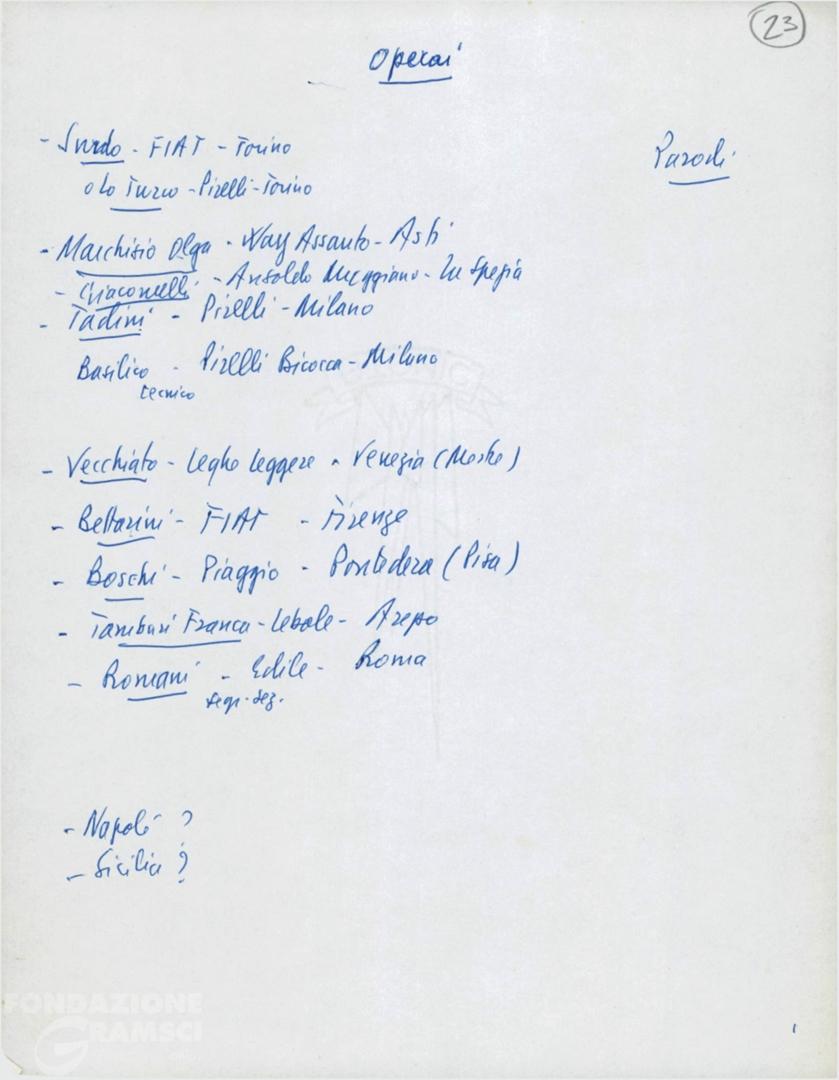 23
Operai
- Surdo - FIAT - Torino
Parodi
o Lo Turco - Pirelli - Torino
- Marchisio Olga - Way Assauto - Asti
- Giacomelli - Ansaldo Muggiano - La Spezia
- Tadini - Pirelli - Milano
Basilico - Pirelli Bicocca - Milano
tecnico
- Vecchiato - Leghe leggere - Venezia (Mestre)
- Bettarini - FIAT - Firenze
- Boschi - Piaggio - Pontedera (Pisa)
- Tamburi Franca - Lebole - Arezzo
- Romani - Edile - Roma
segr. sez.
- Napoli ?
- Sicilia ?
FONDAZIONE
GRAMSCI